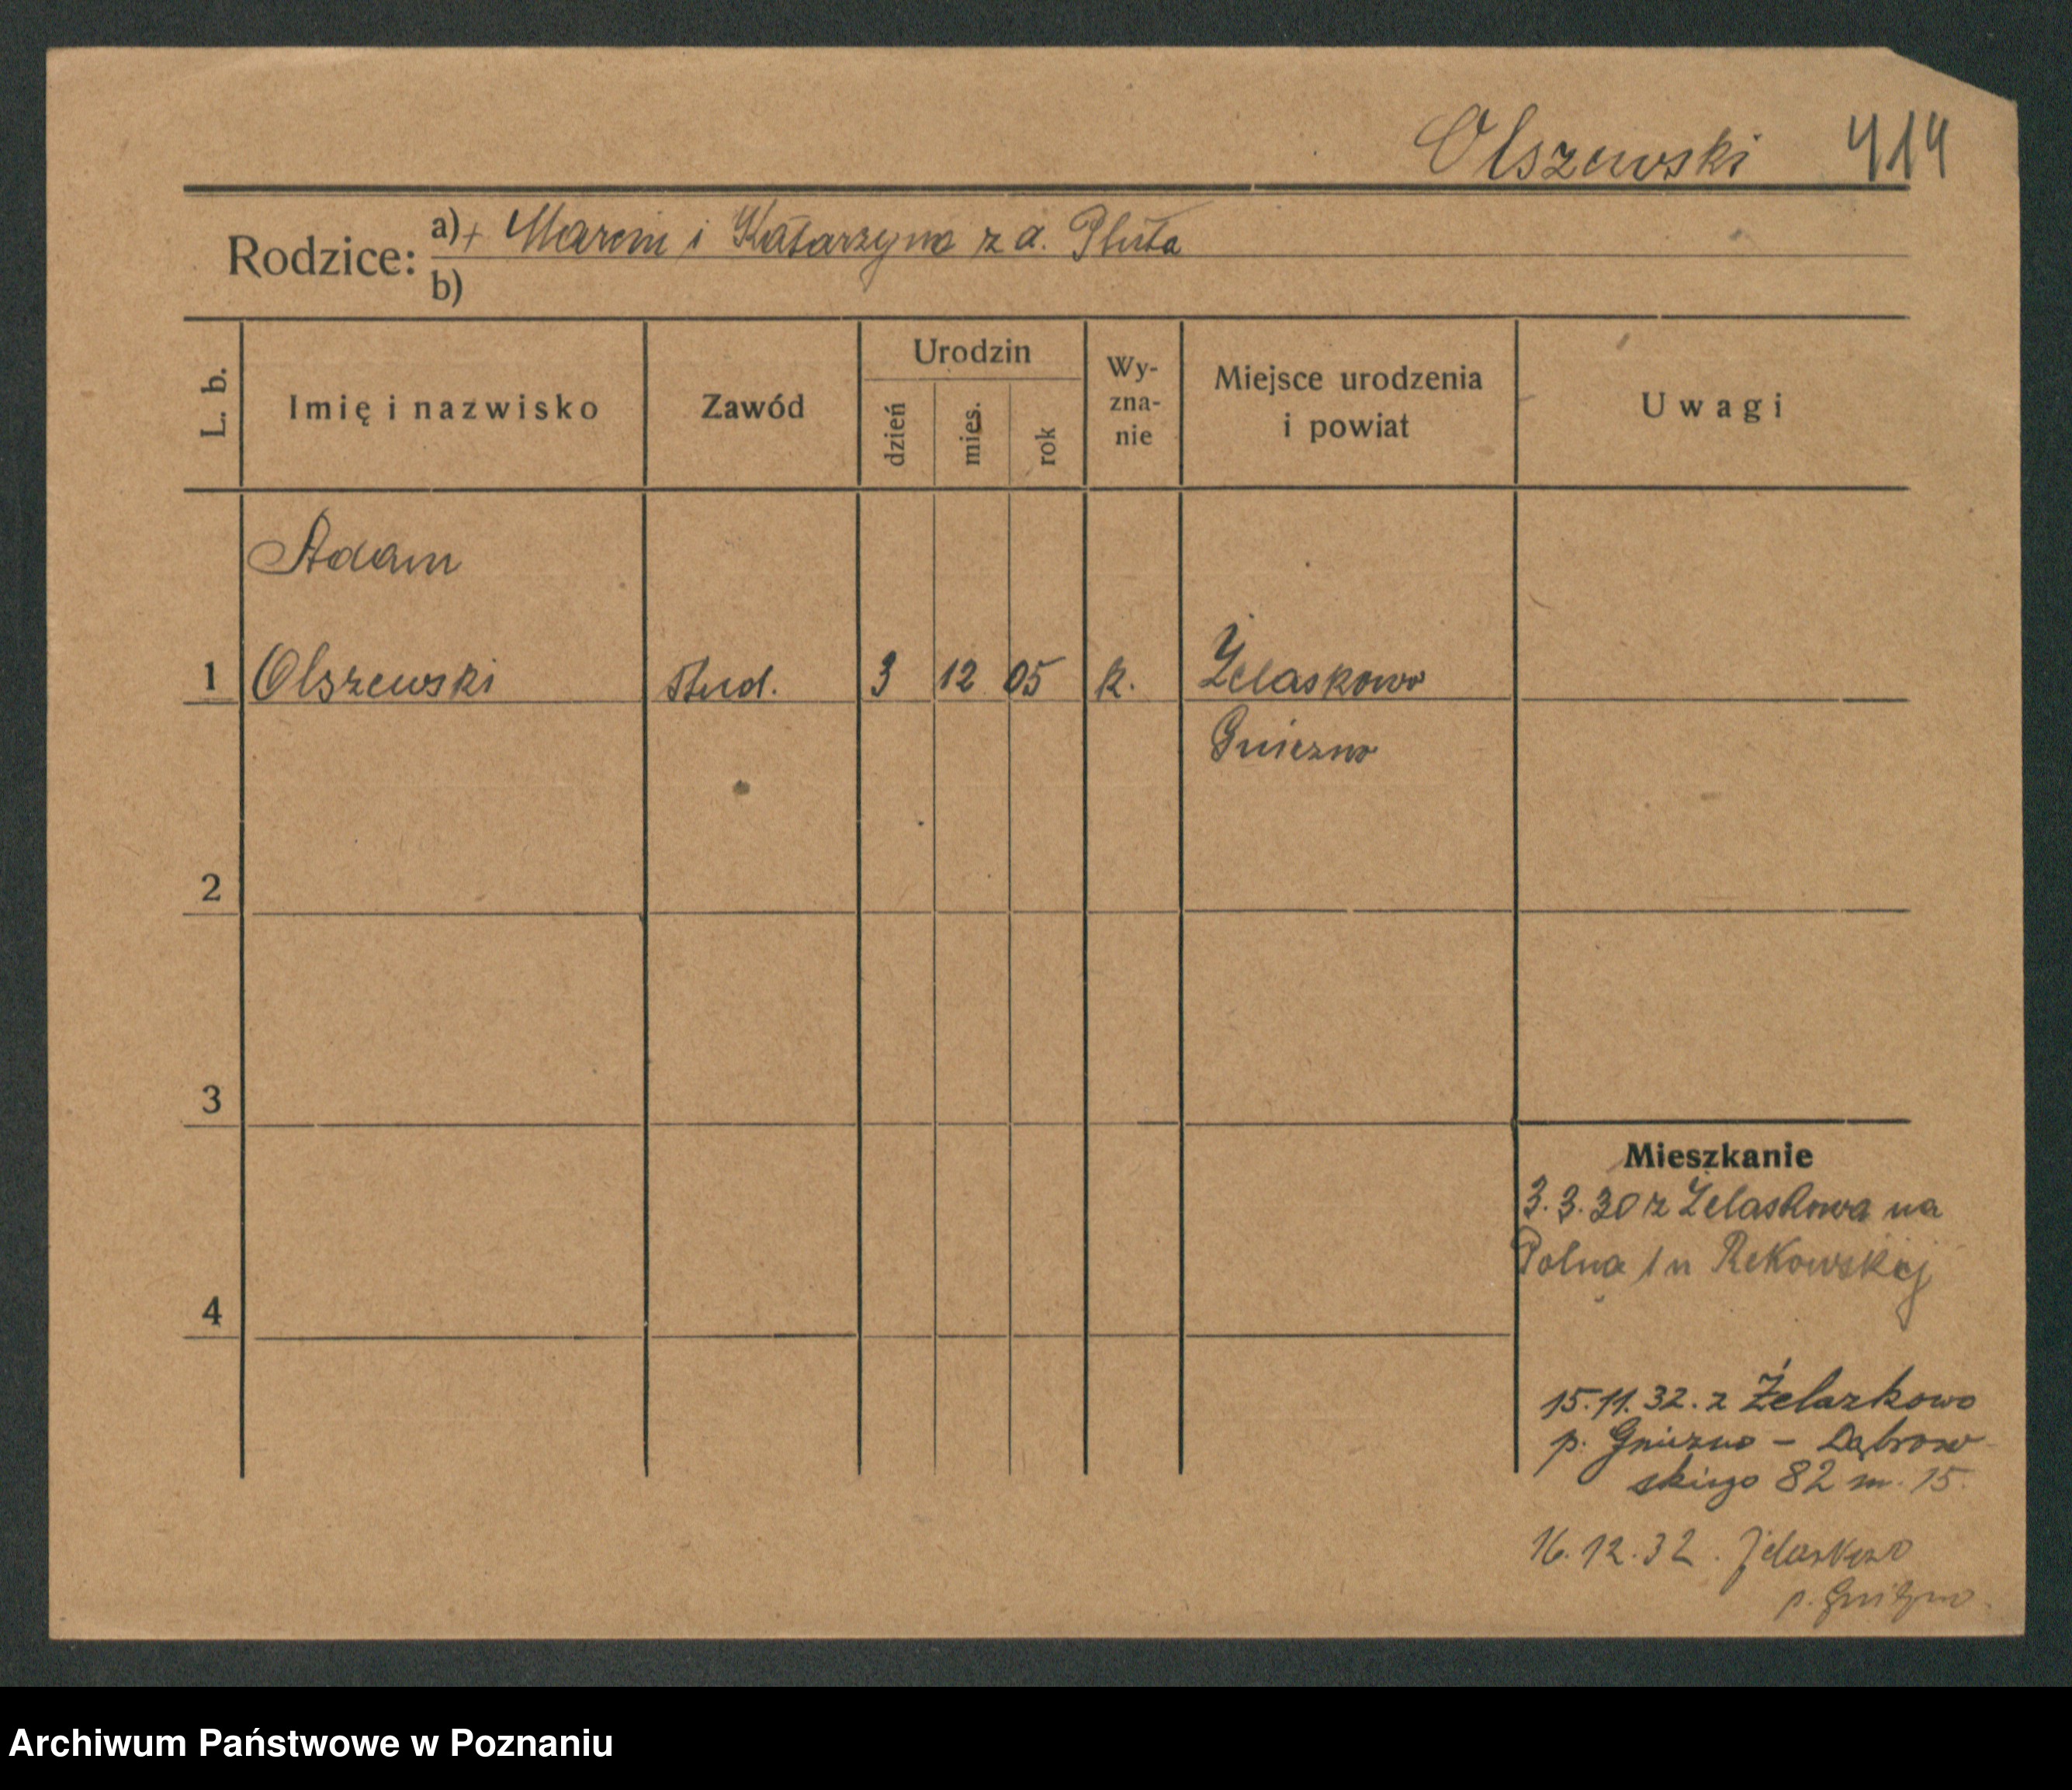 Olszewski 414
Rodzice: a) + Marcin i Katarzyna z d. Pluta
b)
L. b. Imię i nazwisko Zawód Urodzin dzień mies. rok Wy-zna-nie Miejsce urodzenia i powiat Uwagi
Adam
1 Olszewski stud. 3 12 05 k. Żelaskowo
Gniezno
2
3
Mieszkanie
3.3.30 z Żelaskowa na
Polna 1 u Rekowskiej
4
15.11.32. z Żelazkowo
p. Gniezno – Dąbrow
skiego 82 m. 15.
16.12.32. Żelaskowo
p. Gniezno
Archiwum Państwowe w Poznaniu